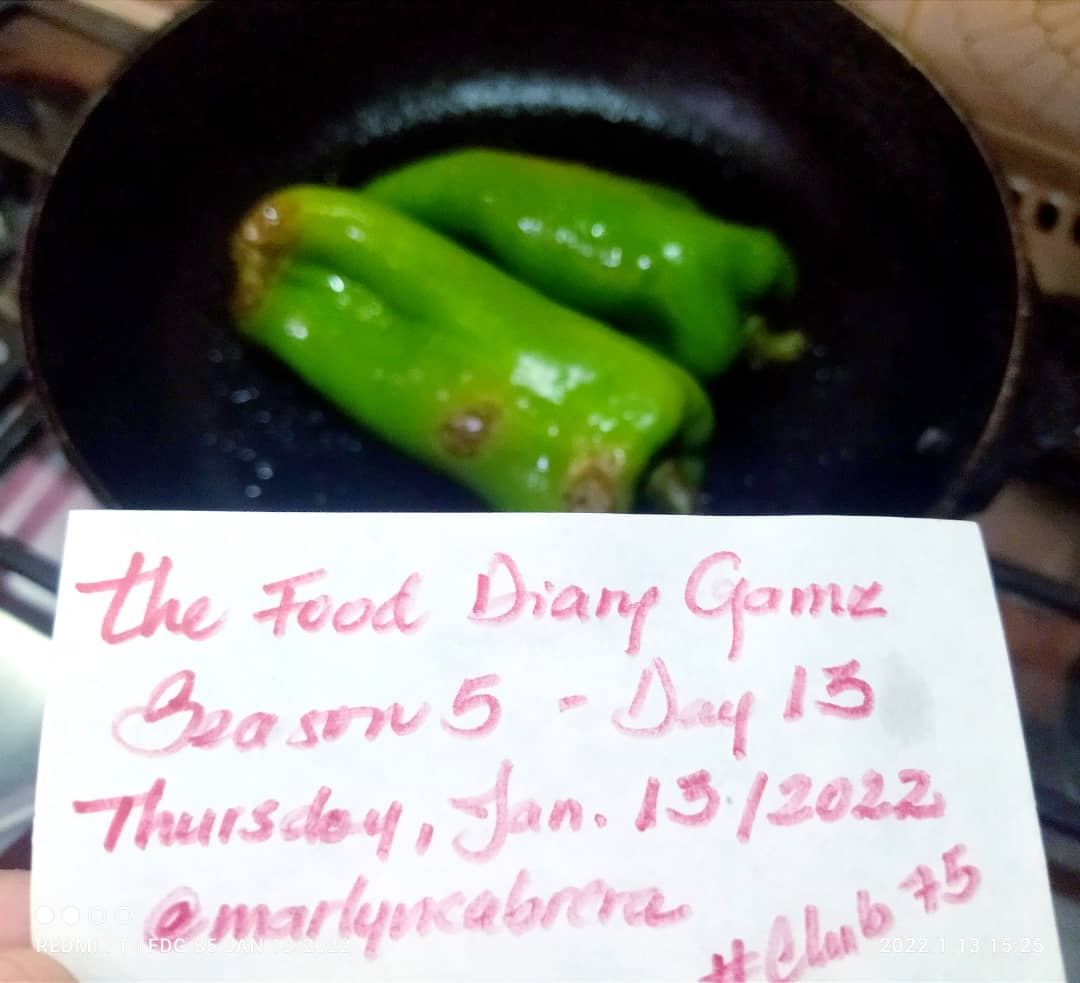 the Food Diary Game
Season 5 - Day 13
Thursday, Jan. 13/2022
@marlyncabrera
#Club75
FDG S5 JAN 13 2022
2022.1.13 15:25